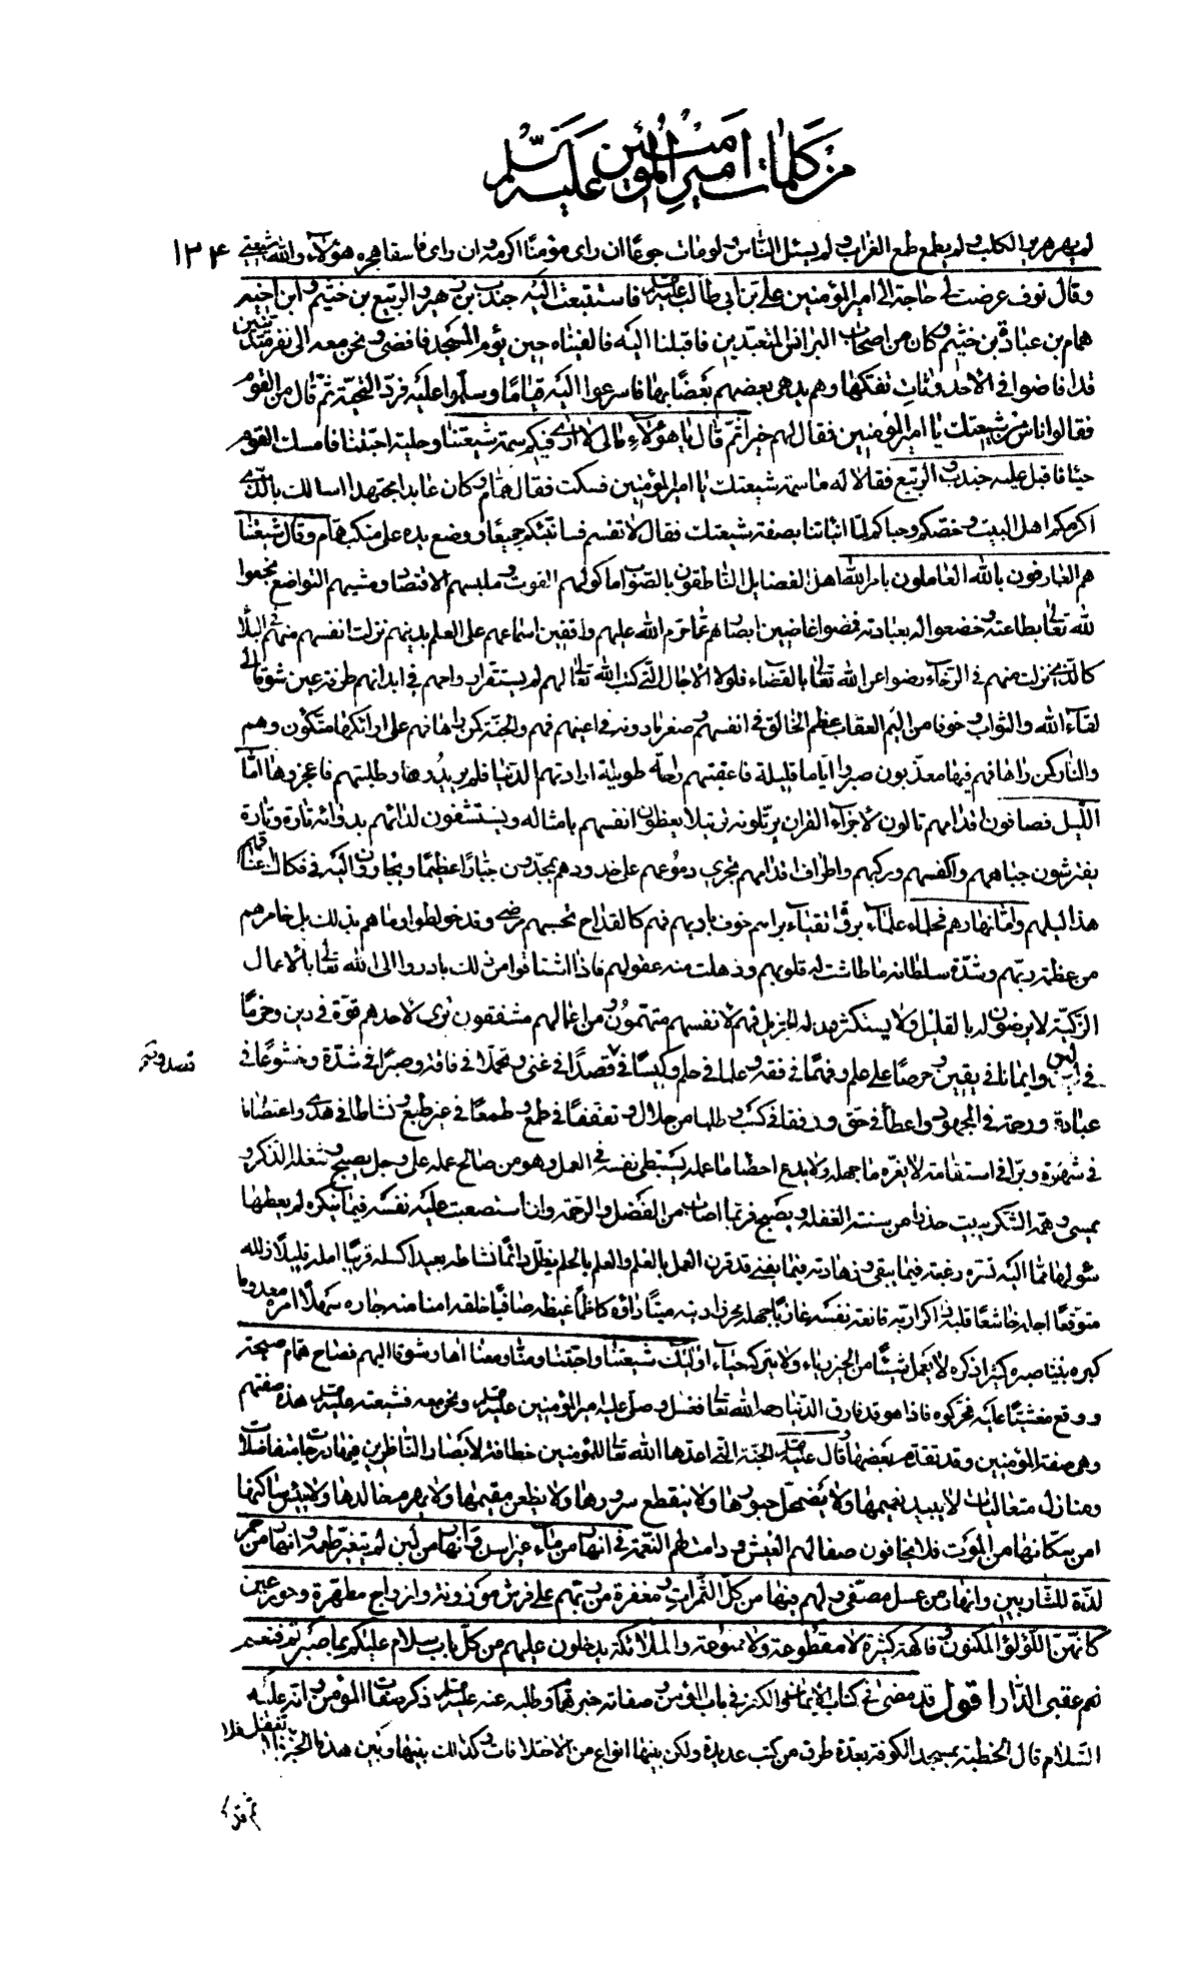 من كلمات امير المؤمنين عليه السلم
١٣٤
لم يهر هرير الكلب و لم يطمع طمع الغراب و لم يسئل الناس و لو مات جوعا ان راى مؤمنا اكرمه و ان راى فاسقا هجره هؤلاء و الله شيعتي
و قال نوف عرضت لي حاجة الى امير المؤمنين علي بن ابي طالب عليه السلم فاستتبعت اليه جندب بن زهير و الربيع بن خثيم و ابن اخيه
همام بن عبادة بن خثيم و كان من اصحاب البرانس المتعبدين فاقبلنا اليه فالفيناه حين يؤم المسجد فافضى و نحن معه الى نفر متدينين
قد افاضوا في الاحدوثات تفكها و هم يلهي بعضهم بعضا بها فاسرعوا اليه قياما و سلموا عليه فرد التحية ثم قال من القوم
فقالوا اناس من شيعتك يا امير المؤمنين فقال لهم خيرا ثم قال يا هؤلاء مالي لا ارى فيكم سمة شيعتنا و حلية احبتنا فامسك القوم
حياء فاقبل عليه جندب و الربيع فقالا له ما سمة شيعتك يا امير المؤمنين فسكت فقال همام و كان عابدا مجتهدا اسالك بالذي
اكرمكم اهل البيت و خصكم و حباكم لما انباتنا بصفة شيعتك فقال لا تقسم فسانبئكم جميعا و وضع يده على منكب همام و قال شيعتنا
هم العارفون بالله العاملون بامر الله اهل الفضايل الناطقون بالصواب ماكولهم القوت و ملبسهم الاقتصاد و مشيهم التواضع بخعوا
لله تعالى بطاعته و خضعوا له بعبادته فمضوا غاضين ابصارهم عما حرم الله عليهم واقفين اسماعهم على العلم بدينهم نزلت انفسهم منهم في البلاء
كالذي نزلت منهم في الرخاء رضوا عن الله تعالى بالقضاء فلولا الاجال التي كتب الله تعالى لهم لم يستقر ارواحهم في ابدانهم طرفة عين شوقا الى
لقاء الله و الثواب و خوفا من اليم العقاب عظم الخالق في انفسهم و صغر ما دونه في اعينهم فهم و الجنة كمن راها فهم على ارائكها متكئون و هم
و النار كمن راها فهم فيها معذبون صبروا اياما قليلة فاعقبتهم راحة طويلة ارادتهم الدنيا فلم يريدوها و طلبتهم فاعجزوها اما
الليل فصافون اقدامهم تالون لاجزاء القران يرتلونه ترتيلا يعظون انفسهم بامثاله و يستشفون لدائهم بدوائه تارة و تارة
يفترشون جباههم و اكفهم و ركبهم و اطراف اقدامهم تجري دموعهم على خدودهم يمجدون جبارا عظيما و يجارون اليه في فكاك رقابهم
هذا ليلهم و اما نهارهم فحلماء علماء بررة اتقياء براهم خوف باريهم فهم كالقداح تحسبهم مرضى و قد خولطوا و ما هم بذلك بل خامرهم
من عظمة ربهم و شدة سلطانه ما طاشت له قلوبهم و ذهلت منه عقولهم فاذا اشتاقوا من ذلك بادروا الى الله تعالى بالاعمال
الزكية لا يرضون له بالقليل و لا يستكثرون له الجزيل فهم لانفسهم متهمون و من اعمالهم مشفقون ترى لاحدهم قوة في دين و حزما
في لين و ايمانا في يقين و حرصا على علم و فهما في فقه و علما في حلم و كيسا في قصدا في غنى و تجملا في فاقة و صبرا في شدة و خشوعا في
عبادة و رحمة في المجهود و اعطاء في حق و رفقا في كسب و طلبا من حلال و تعففا في طمع و طمعا في غير طبع و نشاطا في هدى و اعتصاما
في شهوة و برا في استقامة لا يغره ما جهله و لا يدع احصاء ما عمله يستبطئ نفسه في العمل و هو من صالح عمله على وجل يصبح و شغله الذكر و
يمسي و همه الشكر يبيت حذرا من سنة الغفلة و يصبح فرحا بما اصاب من الفضل و الرحمة و ان استصعبت عليه نفسه فيما يكره لم يعطها
سؤلها مما اليه تسره رغبته فيما يبقى و زهادته فيما يفنى قد قرن العمل بالعلم و العلم بالحلم يظل دائما نشاطه بعيدا كسله قريبا امله قليلا زلله
متوقعا اجله خاشعا قلبه ذاكرا ربه قانعة نفسه عازبا جهله محرزا دينه ميتا داؤه كاظما غيظه صافيا خلقه امنا منه جاره سهلا امره معدوما
كبره بينا صبره كثيرا ذكره لا يعمل شيئا من الخير رياء و لا يتركه حياء اولئك شيعتنا و احبتنا و منا و معنا اها و شوقا اليهم فصاح همام صيحة
و وقع مغشيا عليه فحركوه فاذا هو قد فارق الدنيا رحمه الله تعالى فغسل و صلى عليه امير المؤمنين عليه السلم و نحن معه فشيعته عليه السلم هذه صفتهم
و هي صفة المؤمنين و قد تقدم بعضها و قال عليه السلم الجنة التي اعدها الله تعالى للمؤمنين خطافة لابصار الناظرين فيها درجات متفاضلات
و منازل متعاليات لا يبيد نعيمها و لا يضمحل حبورها و لا ينقطع سرورها و لا يظعن مقيمها و لا يهرم خالدها و لا يبئس ساكنها
امن سكانها من الموت فلا يخافون صفا لهم العيش و دامت لهم النعمة في انهار من ماء غير اسن و انهار من لبن لم يتغير طعمه و انهار من خمر
لذة للشاربين و انهار من عسل مصفى و لهم فيها من كل الثمرات و مغفرة من ربهم على فرش موزونة و ازواج مطهرة و حور عين
كانهن اللؤلؤ المكنون و فاكهة كثيرة لا مقطوعة و لا ممنوعة و الملائكة يدخلون عليهم من كل باب سلام عليكم بما صبرتم فنعم
نعم عقبى الدار اقول قد مضى في كتاب الايمان و الكفر في باب المؤمن و صفاته خبر همام و طلبه عنه عليه السلم ذكر صفات المؤمن و انه عليه
السلام قال الخطبة بمسجد الكوفة بعدة طرق من كتب عديدة و لكن بينها انواع من الاختلافات و كذلك بينها و بين هذا الخبر